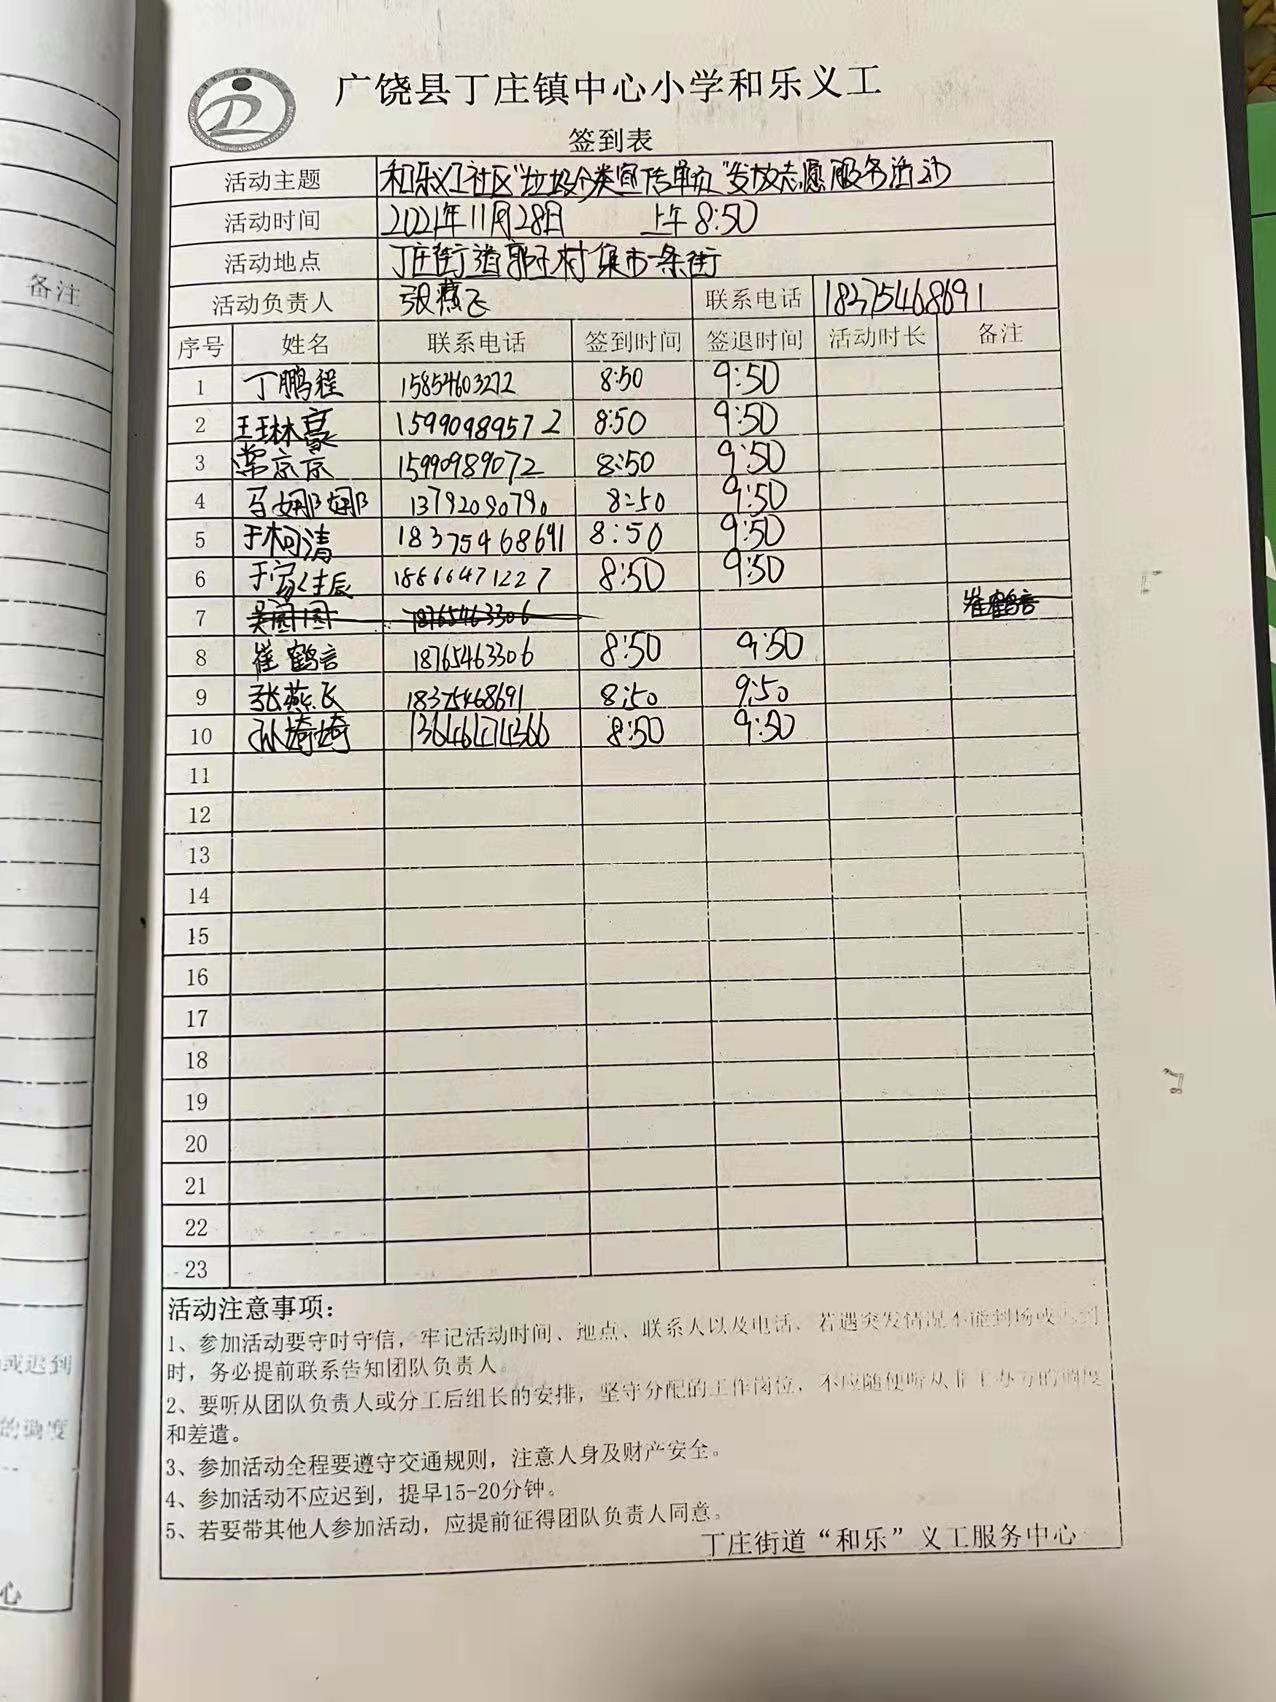 广饶县丁庄镇中心小学和乐义工
签到表
活动主题 和乐义工社区"垃圾分类宣传单页"发放志愿服务活动
活动时间 2021年11月28日 上午8:50
活动地点 丁庄街道郭王村集市一条街
活动负责人 张燕飞 联系电话 18375468691
序号 姓名 联系电话 签到时间 签退时间 活动时长 备注
1 丁鹏程 15854603272 8:50 9:50
2 王琳豪 15990989572 8:50 9:50
3 常京京 15990989072 8:50 9:50
4 马娜娜 13792090790 8:50 9:50
5 于柯清 18375468691 8:50 9:50
6 于 辰 18866471227 8:50 9:50
7 18765463306 崔鹤言
8 崔鹤言 18765463306 8:50 9:50
9 张燕飞 18375468691 8:50 9:50
10 孙埼埼 13646474366 8:50 9:50
11
12
13
14
15
16
17
18
19
20
21
22
23
活动注意事项：
1、参加活动要守时守信，牢记活动时间、地点、联系人以及电话，若遇突发情况不能到场或迟到
时，务必提前联系告知团队负责人。
2、要听从团队负责人或分工后组长的安排，坚守分配的工作岗位，不应随便听从非主办方的调度
和差遣。
3、参加活动全程要遵守交通规则，注意人身及财产安全。
4、参加活动不应迟到，提早15-20分钟。
5、若要带其他人参加活动，应提前征得团队负责人同意。
丁庄街道“和乐”义工服务中心
备注
或迟到
的调度
心